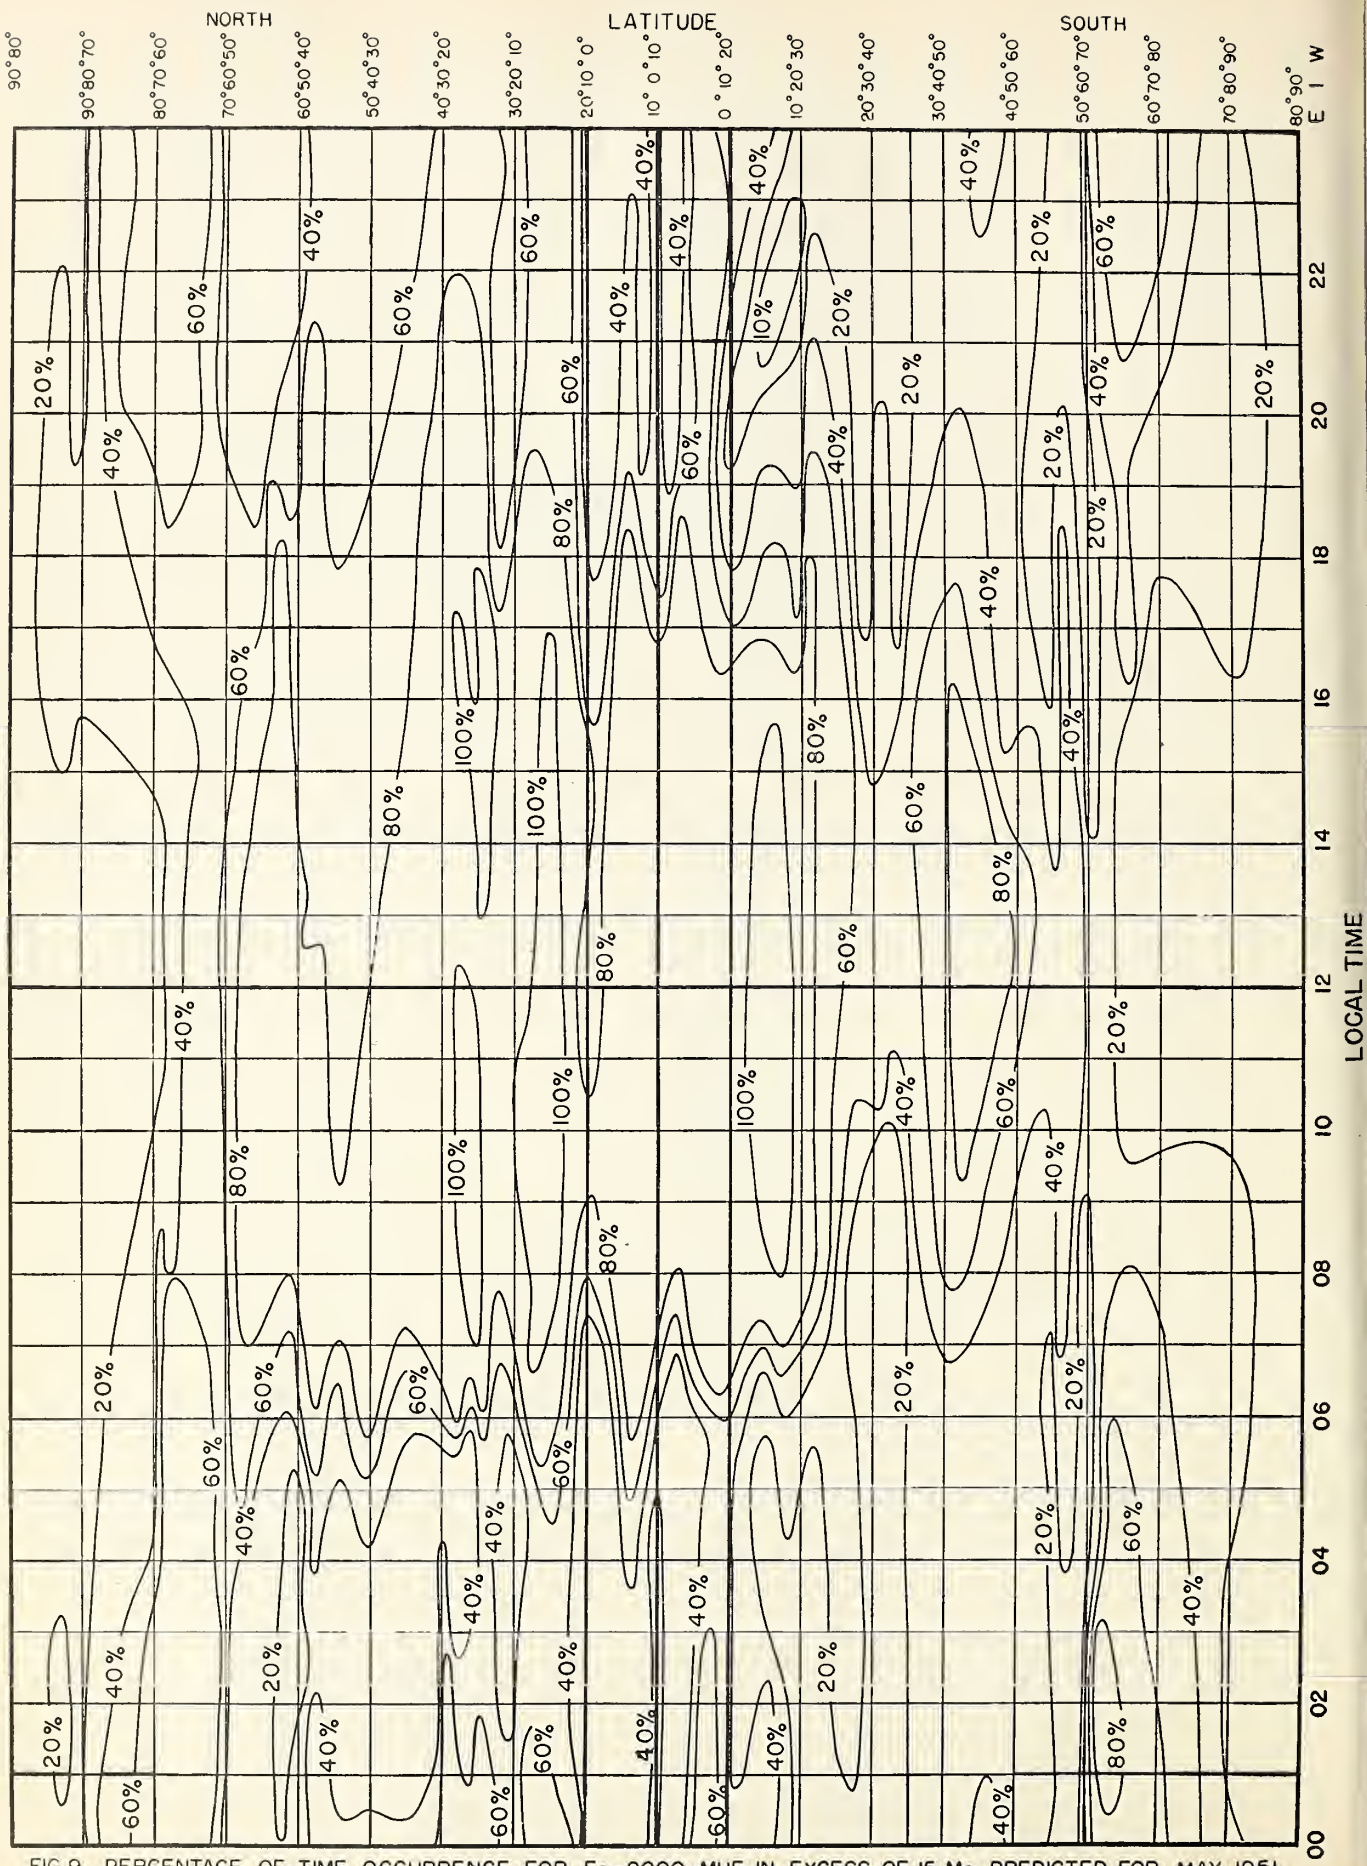 NORTH LATITUDE SOUTH
90° 80°
90° 80° 70°
80° 70° 60°
70° 60° 50°
60° 50° 40°
50° 40° 30°
40° 30° 20°
30° 20° 10°
20° 10° 0°
10° 0° 10°
0° 10° 20°
10° 20° 30°
20° 30° 40°
30° 40° 50°
40° 50° 60°
50° 60° 70°
60° 70° 80°
70° 80° 90°
80° 90°
E I W
40% 40% 40%
40% 60% 40% 20% 60%
60% 60% 40% 10% 20%
20% 60% 20% 40% 20%
40% 60% 40% 20%
80% 20%
40%
60%
100% 80% 40%
80% 100% 60%
80%
80% 60%
40% 20%
100% 100% 40% 60%
80% 100% 40%
80%
20% 60% 60% 20% 20%
60% 60%
40% 40% 20% 60%
40% 40% 40%
40% 20% 40% 20%
20% 40% 60% 40% 40% 80%
60% 60% 60% 40%
22
20
18
16
14
12
10
08
06
04
02
00
LOCAL TIME
PERCENTAGE OF TIME OCCURRENCE FOR Es-2000-MUF IN EXCESS OF 15 Mc PREDICTED FOR MAY 1951